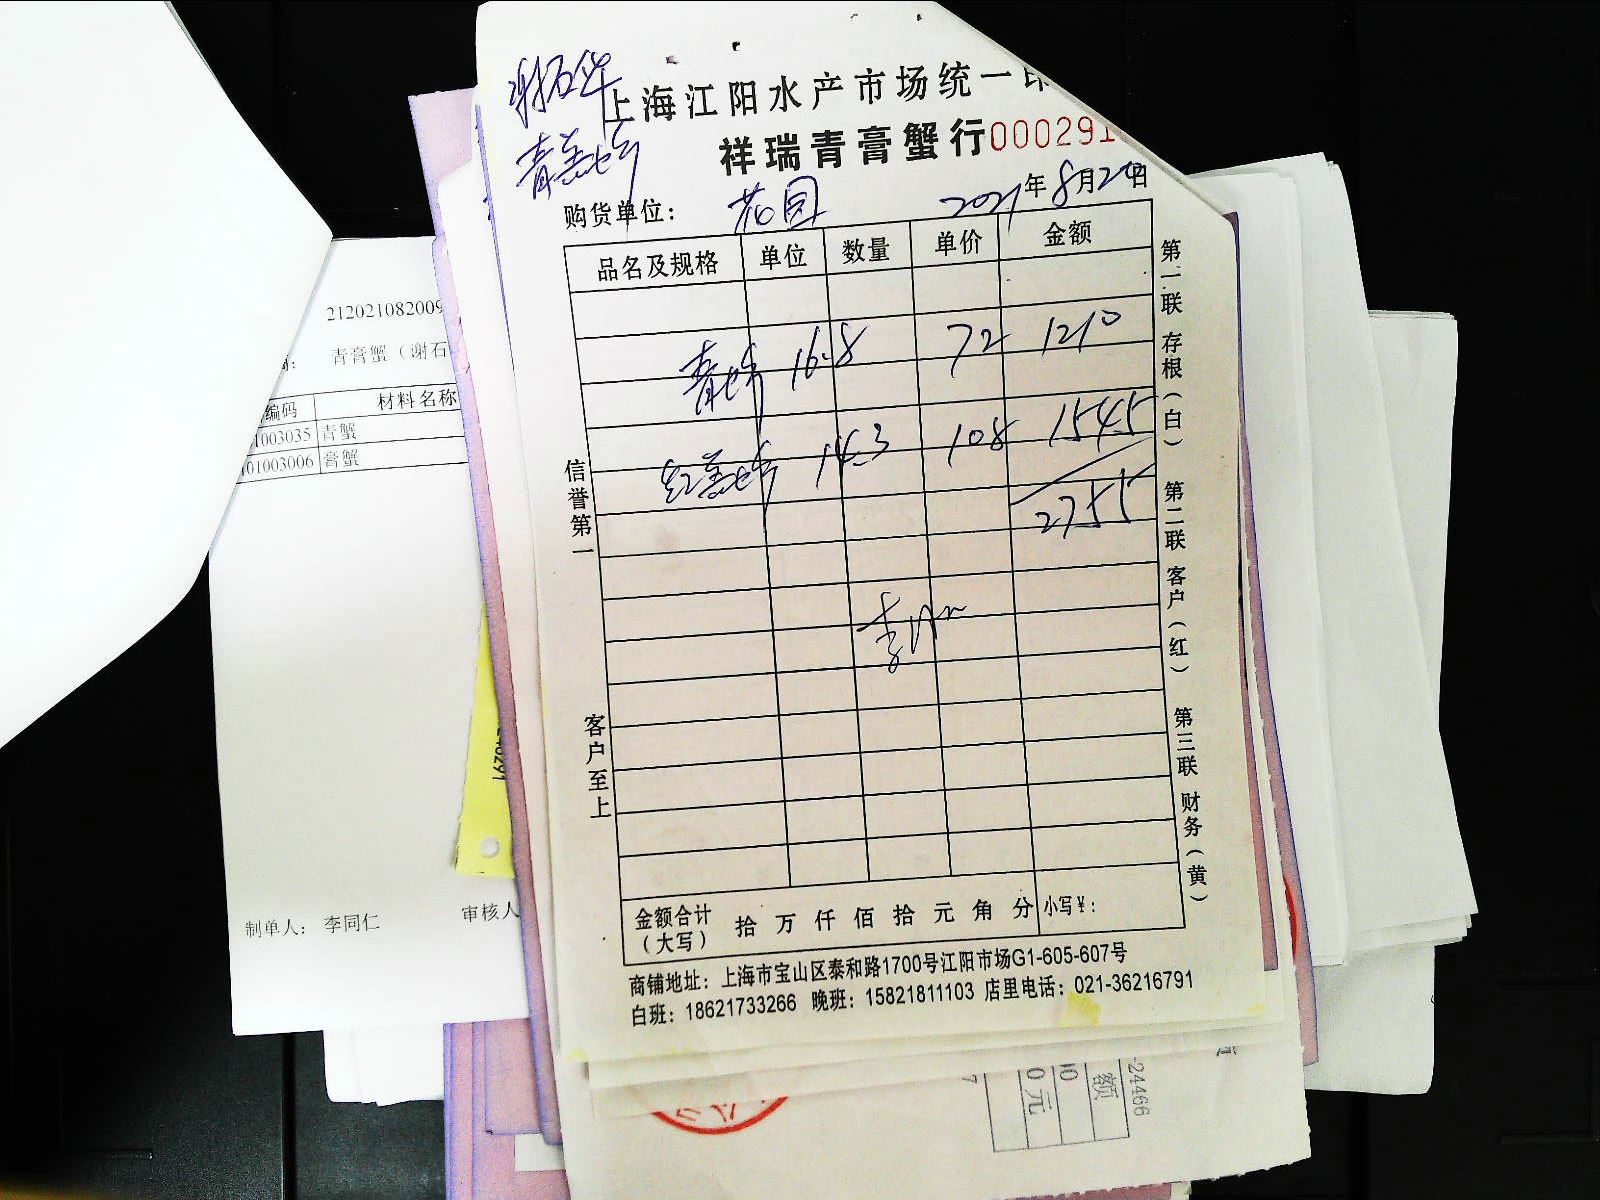 谢石华
青膏蟹
上海江阳水产市场统一印
祥瑞青膏蟹行 000291
购货单位： 花园 2021年8月20日
品名及规格 单位 数量 单价 金额
青蟹 16.8 72 1210
红膏蟹 14.3 108 1545
2755
信誉第一
客户至上
第一联 存根（白）
第二联 客户（红）
第三联 财务（黄）
金额合计（大写） 拾 万 仟 佰 拾 元 角 分 小写¥：
商铺地址：上海市宝山区泰和路1700号江阳市场G1-605-607号
白班：18621733266 晚班：15821811103 店里电话：021-36216791
212021082009
青膏蟹（谢石
编码 材料名称
1003035 青蟹
01003006 膏蟹
制单人： 李同仁 审核人
-24466
额
0元